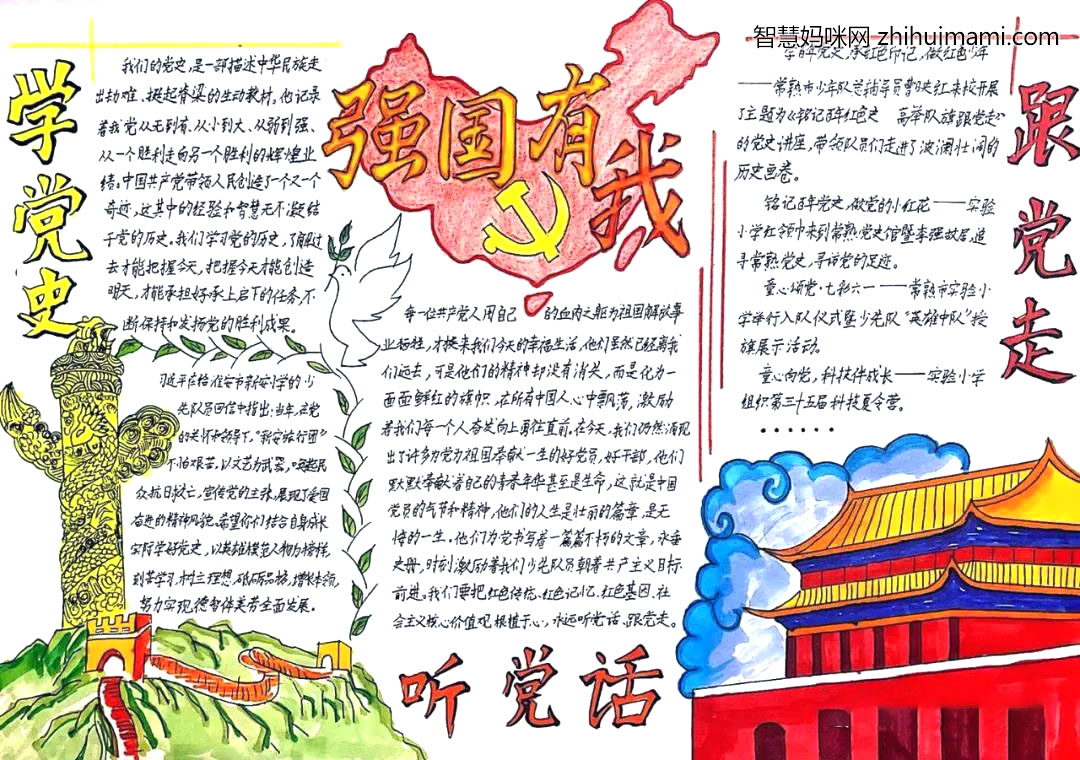 智慧妈咪网 zhihuimami.com
强国有我
学党史
我们的党史,是一部描述中华民族走
出劫难、挺起脊梁的生动教材。他记录
着我党从无到有、从小到大、从弱到强、
从一个胜利走向另一个胜利的辉煌业
绩。中国共产党带领人民创造了一个又一个
奇迹,这其中的经验和智慧无不凝结
于党的历史。我们学习党的历史,了解过
去才能把握今天,把握今天才能创造
明天,才能承担好承上启下的任务,不
断保持和发扬党的胜利成果。
习近平在给淮安市新安小学的少
先队员回信中指出:当年,在党
的关怀和领导下,“新安旅行团”
不怕艰苦,以文艺为武器,唤起民
众抗日救亡,宣传党的主张,展现了爱国
奋进的精神风貌。希望你们结合自身成长
实际学好党史,以英雄模范人物为榜样,
刻苦学习,树立理想,砥砺品格,增长本领,
努力实现德智体美劳全面发展。
每一位共产党人用自己的血肉之躯为祖国解放事
业牺牲,才换来我们今天的幸福生活,他们虽然已经离我
们远去,可是他们的精神却没有消失,而是化为一
面面鲜红的旗帜,在所有中国人心中飘荡,激励
着我们每一个人奋发向上勇往直前。在今天,我们仍然涌现
出了许多为党为祖国奉献一生的好党员,好干部,他们
默默奉献着自己的青春年华甚至是生命,这就是中国
党员的气节和精神,他们的人生是壮丽的篇章,是无
悔的一生。他们为党书写着一篇篇不朽的文章,永垂
史册,时刻激励着我们少先队员朝着共产主义目标
前进。我们要把红色传统、红色记忆、红色基因、社
会主义核心价值观根植于心,永远听党话、跟党走。
听党话
学百年党史,承红色印记,做红色少年
——常熟市少年队总辅导员曹映红来校开展
了主题为《铭记百年红色史 高举队旗跟党走》
的党史讲座,带领队员们走进了波澜壮阔的
历史画卷。
铭记百年党史,做党的小红花——实验
小学红领巾来到常熟党史馆暨李强故居,追
寻常熟党史,寻访党的足迹。
童心颂党·七彩六一——常熟市实验小
学举行入队仪式暨少先队“英雄中队”授
旗展示活动。
童心向党,科技伴成长——实验小学
组织第三十五届科技夏令营。
······
跟党走